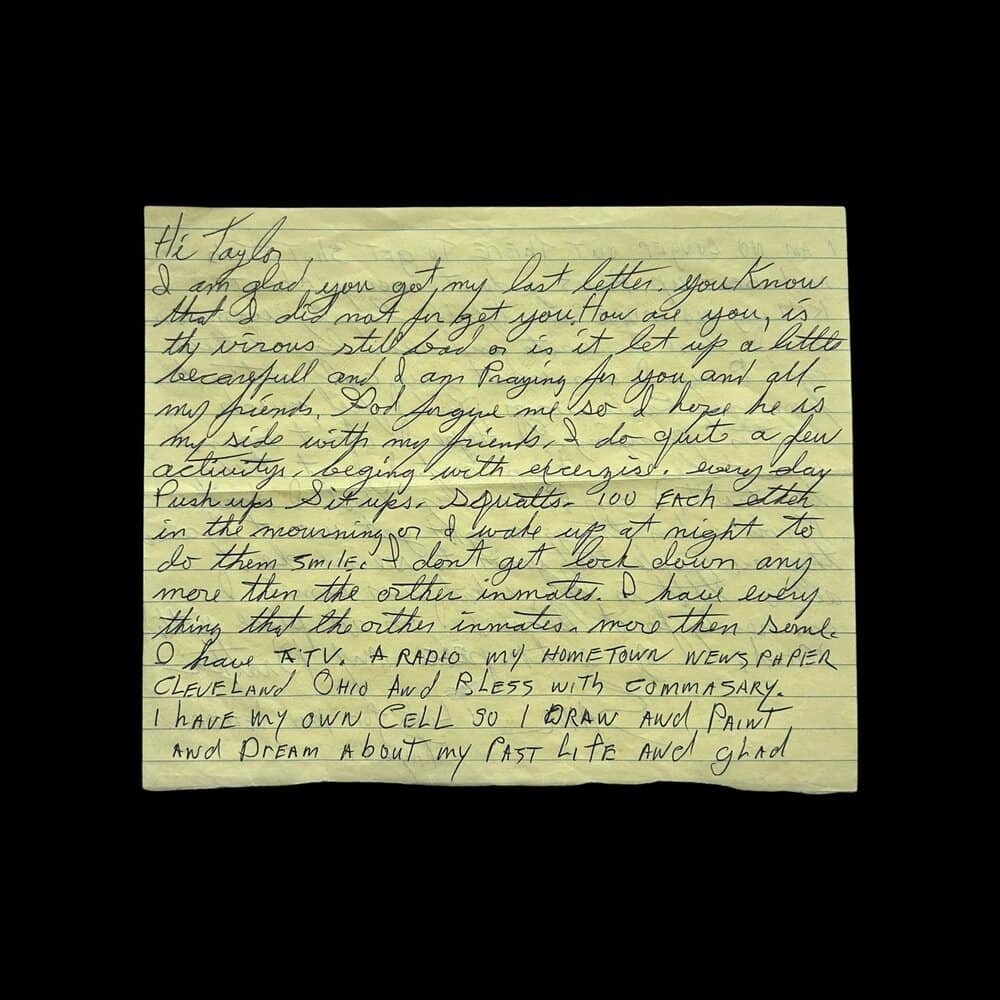 Hi Taylor,
I am glad you got my last letter. you Know
that I did not for get you. How are you, is
th virous still bad or is it let up a little
becarefull and I am Praying for you and all
my friends. God forgive me so I hope he is
my side with my friends. I do quit a few
activitys. beging with excerzise. every day
Push ups Sit ups. Squatts. 100 EACH either
in the mourning or I wake up at night to
do them SMILE. I don't get lock down any
more then the orther inmates. I have every
thing that the orther inmates. more then some.
I have A TV. A RADIO MY HOMETOWN NEWS PAPER
CLEVELANd OHIO ANd BLESS WITh COMMASARY.
I HAVE MY OWN CELL SO I DRAW AND PAINT
AND DREAM About my PAST LifE AND glAd